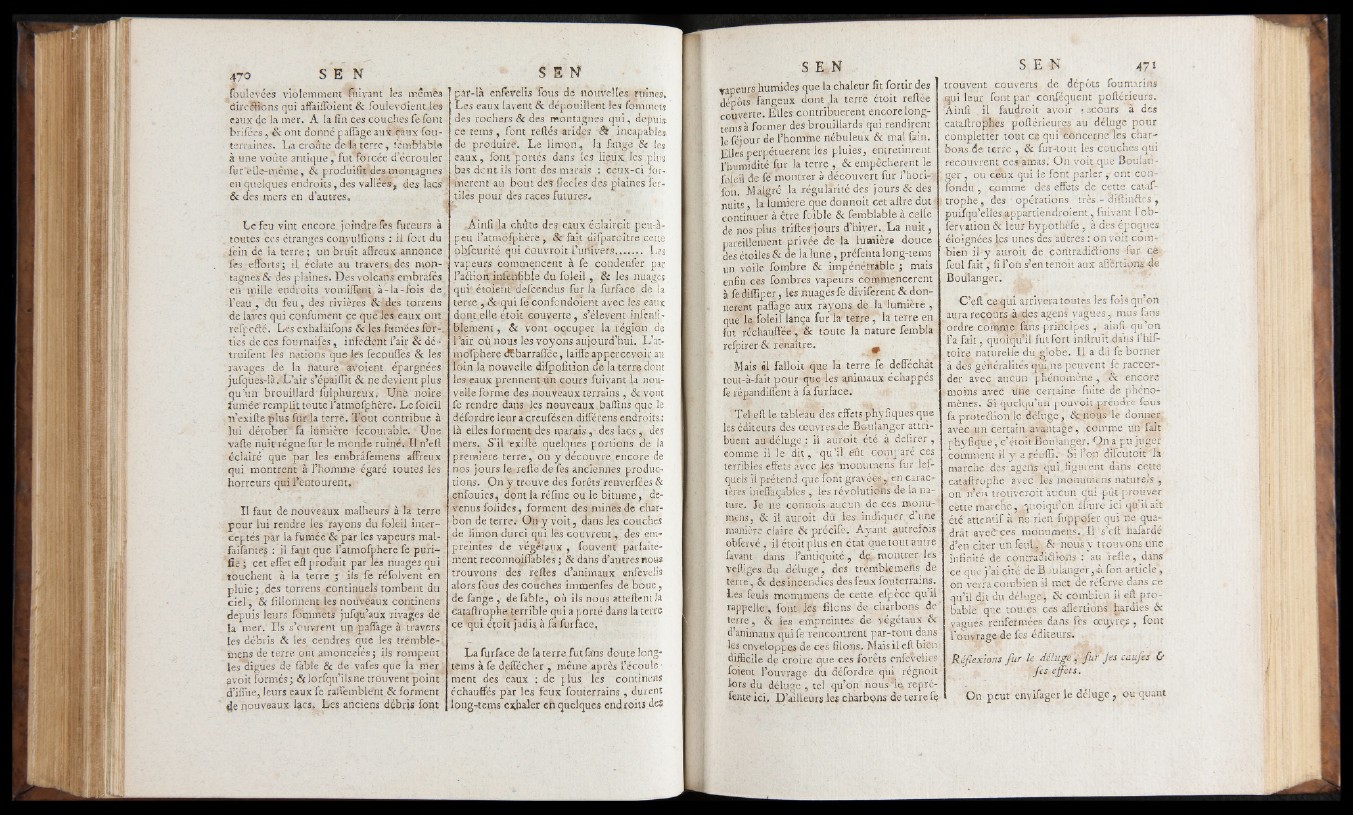 470 SEN
soulevées violemment suivant les mêmes
directions qui affaissoient & soulevoient les
eaux de la mer. A la fin ces couches se sont
brisées, & ont donné passage aux eaux sou-
terraines. La croûte de la terre, semblable
à une voûte antique, fut forcée d'écrouler
sur elle-même, & produisit des montagnes
en quelques endroits, des vallées, des lacs
& des mers en d'autres.
Le feu vint encore joindre ses fureurs à
toutes ces étranges convulsions : il sort du
sein de la terre ; un bruit affreux annonce
ses efforts ; il éclate au travers des mon-
tagnes & des plaines. Des volcans embrasés
en mille endroits vomissent à-la-fois de
l'eau, du feu, des rivières & des torrens
de laves qui consument ce que les eaux ont
respecté. Les exhalaisons & les fumées sor-
ties de ces fournaises, infectent l'air & dé-
truisent les nations que les secousses & les
ravages de la nature avoient épargnées
jusques-là. L'air s'épaissit & ne devient plus
qu'un brouillard sulphureux. Une noire
fumée remplit toute l'atmosphère. Le soleil
n'existe plus sur la terre. Tout contribue à
lui dérober sa lumière secourable. Une
vaste nuit règne sur le monde ruiné. Il n'est
éclairé que par les embrâsemens affreux
qui montrent à l'homme égaré toutes les
horreurs qui l'entourent.
Il faut de nouveaux malheurs à la terre
pour lui rendre les rayons du soleil inter-
ceptés par la fumée & par les vapeurs mal-
faisantes : il faut que l'atmosphere se puri-
fie ; cet effet est produit par les nuages qui
touchent à la terre ; ils se résolvent en
pluie ; des torrens continuels tombent du
ciel, & sillonnent les nouveaux continens
depuis leurs sommets jusqu'aux rivages de
la mer. Ils s'ouvrent un passage à travers
les débris & les cendres que les tremble-
mens de terre ont amoncelés ; ils rompent
les digues de sable & de vases que la mer
avoit formés ; & lorsqu'ils ne trouvent point
d'issue, leurs eaux se rassemblent & forment
de nouveaux lacs. Les anciens débris sont
SEN
par-là ensevelis sous de nouvelles ruines.
Les eaux lavent & dépouillent les sommets
des rochers & des montagnes qui, depuis
ce tems, sont restés arides & incapables
de produire. Le limon, la fange & les
eaux, sont portés dans les lieux les plus
bas dont ils font des marais : ceux-ci for-
merent au bout des siecles des plaines fer-
tiles pour des races futures.
Ainsi la chûte des eaux éclaircit peu-à-
peu l'atmosphère, & fait disparoître cette
obscurité qui couvroit l'univers....... Les
vapeurs commencent à se condenser par
l'action insensible du soleil, & les nuages
qui étoient descendus sur la surface de la
terre, & qui se confondoient avec les eaux
dont elle étoit couverte, s'élevent insensi-
blement, & vont occuper la région de
l'air où nous les voyons aujourd'hui. L'at-
mosphere débarrassée, laisse appercevoir au
loin la nouvelle disposition de la terre dont
les eaux prennent un cours suivant la nou-
velle forme des nouveaux terrains, & vont
se rendre dans les nouveaux bassins que le
désordre leur a creusés en différens endroits :
là elles forment des marais, des lacs, des
mers. S'il existe quelques portions de la
premiere terre, on y découvre encore de
nos jours le reste de ses anciennes produc-
tions. On y trouve des forêts renversées &
enfouies, dont la résine ou le bitume, de-
venus solides, forment des mines de char-
bon de terre. On y voit, dans les couches
de limon durci qui les couvrent, des em-
preintes de végétaux, souvent parfaite-
ment reconnoissables ; & dans d'autres nous
trouvons des restes d'animaux ensevelis
alors sous des couches immenses de boue,
de fange, de sable, où ils nous attestent la
catastrophe terrible qui a porté dans la terre
ce qui étoit jadis à sa surface.
La surface de la terre fut sans doute long-
tems à se dessécher, même après l'écoule-
ment des eaux ; de plus les continens
échauffés par les feux souterrains, durent
long-tems exhaler en quelques endroits des
SEN
vapeurs humides que la chaleur fit sortir des
dépôts fangeux dont la terre étoit restée
couverte. Elles contribuerent encore long-
tems à former des brouillards qui rendirent
le séjour de l'homme nébuleux & mal sain.
Elles perpétuerent les pluies, entretinrent
l'humidité sur la terre, & empêcherent le
soleil de se montrer à découvert sur l'hori-
son. Malgré la régularité des jours & des
nuits, la lumiere que donnoit cet astre dut
continuer à être foible & semblable à celle
de nos plus tristes jours d'hiver. La nuit,
pareillement privée de la lumière douce
des étoiles & de la lune, présenta long-tems
un voile sombre & impénétrable ; mais
enfin ces sombres vapeurs commencerent
à se dissiper, les nuages se diviserent & don-
nerent passage aux rayons de la lumière,
que le soleil lança sur la terre, la terre en
fut réchauffée, & toute la nature sembla
respirer & renaître.
Mais il falloit que la terre se desséchât
tout-à-fait pour que les animaux échappés
se répandissent à sa surface.
Tel est le tableau des effets physiques que
les éditeurs des œuvres de Boulanger attri-
buent au déluge : il auroit été à desirer,
comme il le dit, qu'il eût comparé ces
terribles effets avec les monumens sur les-
quels il prétend que sont gravées, en carac-
tères ineffaçables, les révolutions de la na-
ture. Je ne connois aucun de ces monu-
mens, & il auroit dû les indiquer d'une
manière claire & précise. Ayant autrefois
observé, il étoit plus en état que tout autre
savant dans l'antiquité, de montrer les
vestiges du déluge, des tremblemens de
terre, & des incendies des feux souterrains.
Les seuls monumens de cette espèce qu'il
rappelle, sont les filons de charbons de
terre, & les empreintes de végétaux &
d'animaux qui se rencontrent par-tout dans
les enveloppes de ces filons. Mais il est bien
difficile de croire que ces forêts ensevelies
soient l'ouvrage du désordre qui régnoit
lors du déluge, tel qu'on nous le repré-
sente ici. D'ailleurs les charbons de terre se
SEN 471
trouvent couverts de dépôts soumarins
qui leur sont par conséquent postérieurs.
Ainsi il faudroit avoir recours à des
catastrophes postérieures au déluge pour
completter tout ce qui concerne les char-
bons de terre, & sur-tout les couches qui
recouvrent ces amas. On voit que Boulan-
ger, ou ceux qui le font parler, ont con-
fondu, comme des effets de cette catas-
trophe, des opérations très-distinctes,
puisqu'elles appartiendroient, suivant l'ob-
servation & leur hypothèse, à des époques
éloignées les unes des autres : on voit com-
bien il y auroit de contradictions sur ce
seul fait, si l'on s'en tenoit aux assertions de
Boulanger.
C'est ce qui arrivera toutes les fois qu'on
aura recours à des agens vagues, mus sans
ordre comme sans principes, ainsi qu'on
l'a fait, quoiqu'il fût fort instruit dans l'his-
toire naturelle du globe. Il a dû se borner
à des généralités qui ne peuvent se raccor-
der avec aucun phénomène, & encore
moins avec une certaine suite de phéno-
mènes. Si quelqu'un pouvoit prendre sous
sa protection le déluge, & nous le donner
avec un certain avantage, comme un fait
physique, c'étoit Boulanger. On a pu juger
comment il y a réussi. Si l'on discutoit la
marche des agens qui figurent dans cette
catastrophe avec les monumens naturels,
on n'en trouveroit aucun qui pût prouver
cette marche, quoiqu'on assure ici qu'il ait
été attentif à ne rien supposer qui ne qua-
drât avec ces monumens. Il s'est hasardé
d'en citer un seul, & nous y trouvons une
infinité de contradictions : au reste, dans
ce que j'ai cité de Boulanger, à son article,
on verra combien il met de réserve dans ce
qu'il dit du déluge, & combien il est pro-
bable que toutes ces assertions hardies &
vagues renfermées dans ses œuvres, sont
l'ouvrage de ses éditeurs.
Réflexions sur le déluge, sur ses causes &
ses effets.
On peut envisager le déluge, ou quant